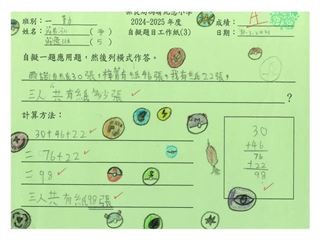 2024-2025 年度
班別：一
成績：A
姓名：
自擬題目工作紙(3)
日期：
自擬一題應用題，然後列橫式作答。
有紙30張，梅菁有紙46張，我有紙22張，
三人共有紙多少張？
計算方法：
30+46+22
=76+22
=98
三人共有紙98張
30
+46
76
+22
98